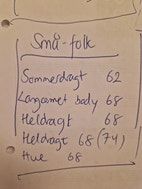 Små-folk
Sommerdragt 62
Langærmet body 68
Heldragt 68
Heldragt 68 (74)
Hue 68